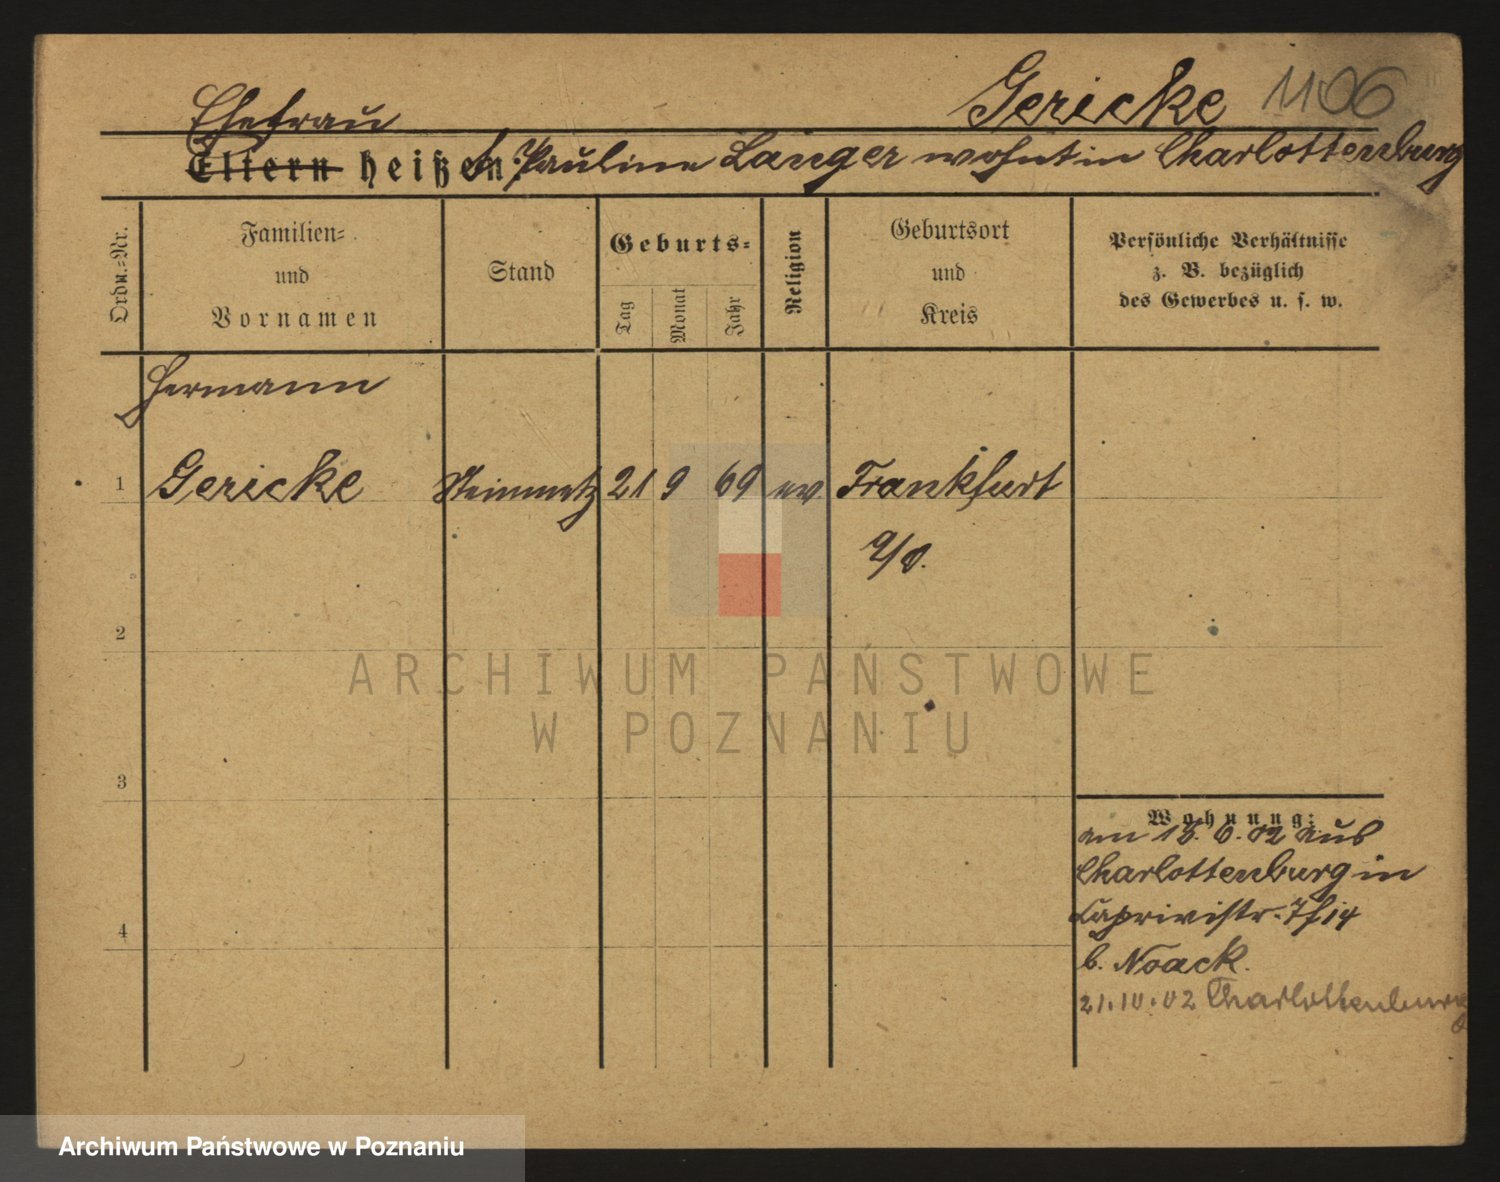 Gericke 1106
Ehefrau
Eltern heißen: Pauline Langer wohnt in Charlottenburg
Ordn.-Nr.
Familien-
und
Vornamen
Stand
Geburts-
Tag
Monat
Jahr
Religion
Geburtsort
und
Kreis
Persönliche Verhältnisse
z. B. bezüglich
des Gewerbes u. s. w.
Hermann
1 Gericke Steinmetz 21 9 69 ev Frankfurt
a/O.
2
3
4
Wohnung:
am 18. 6. 02 aus
Charlottenburg in
Caprivistr. 7 f 14
b. Noack.
21.10.02 Charlottenburg
ARCHIWUM PAŃSTWOWE
W POZNANIU
Archiwum Państwowe w Poznaniu